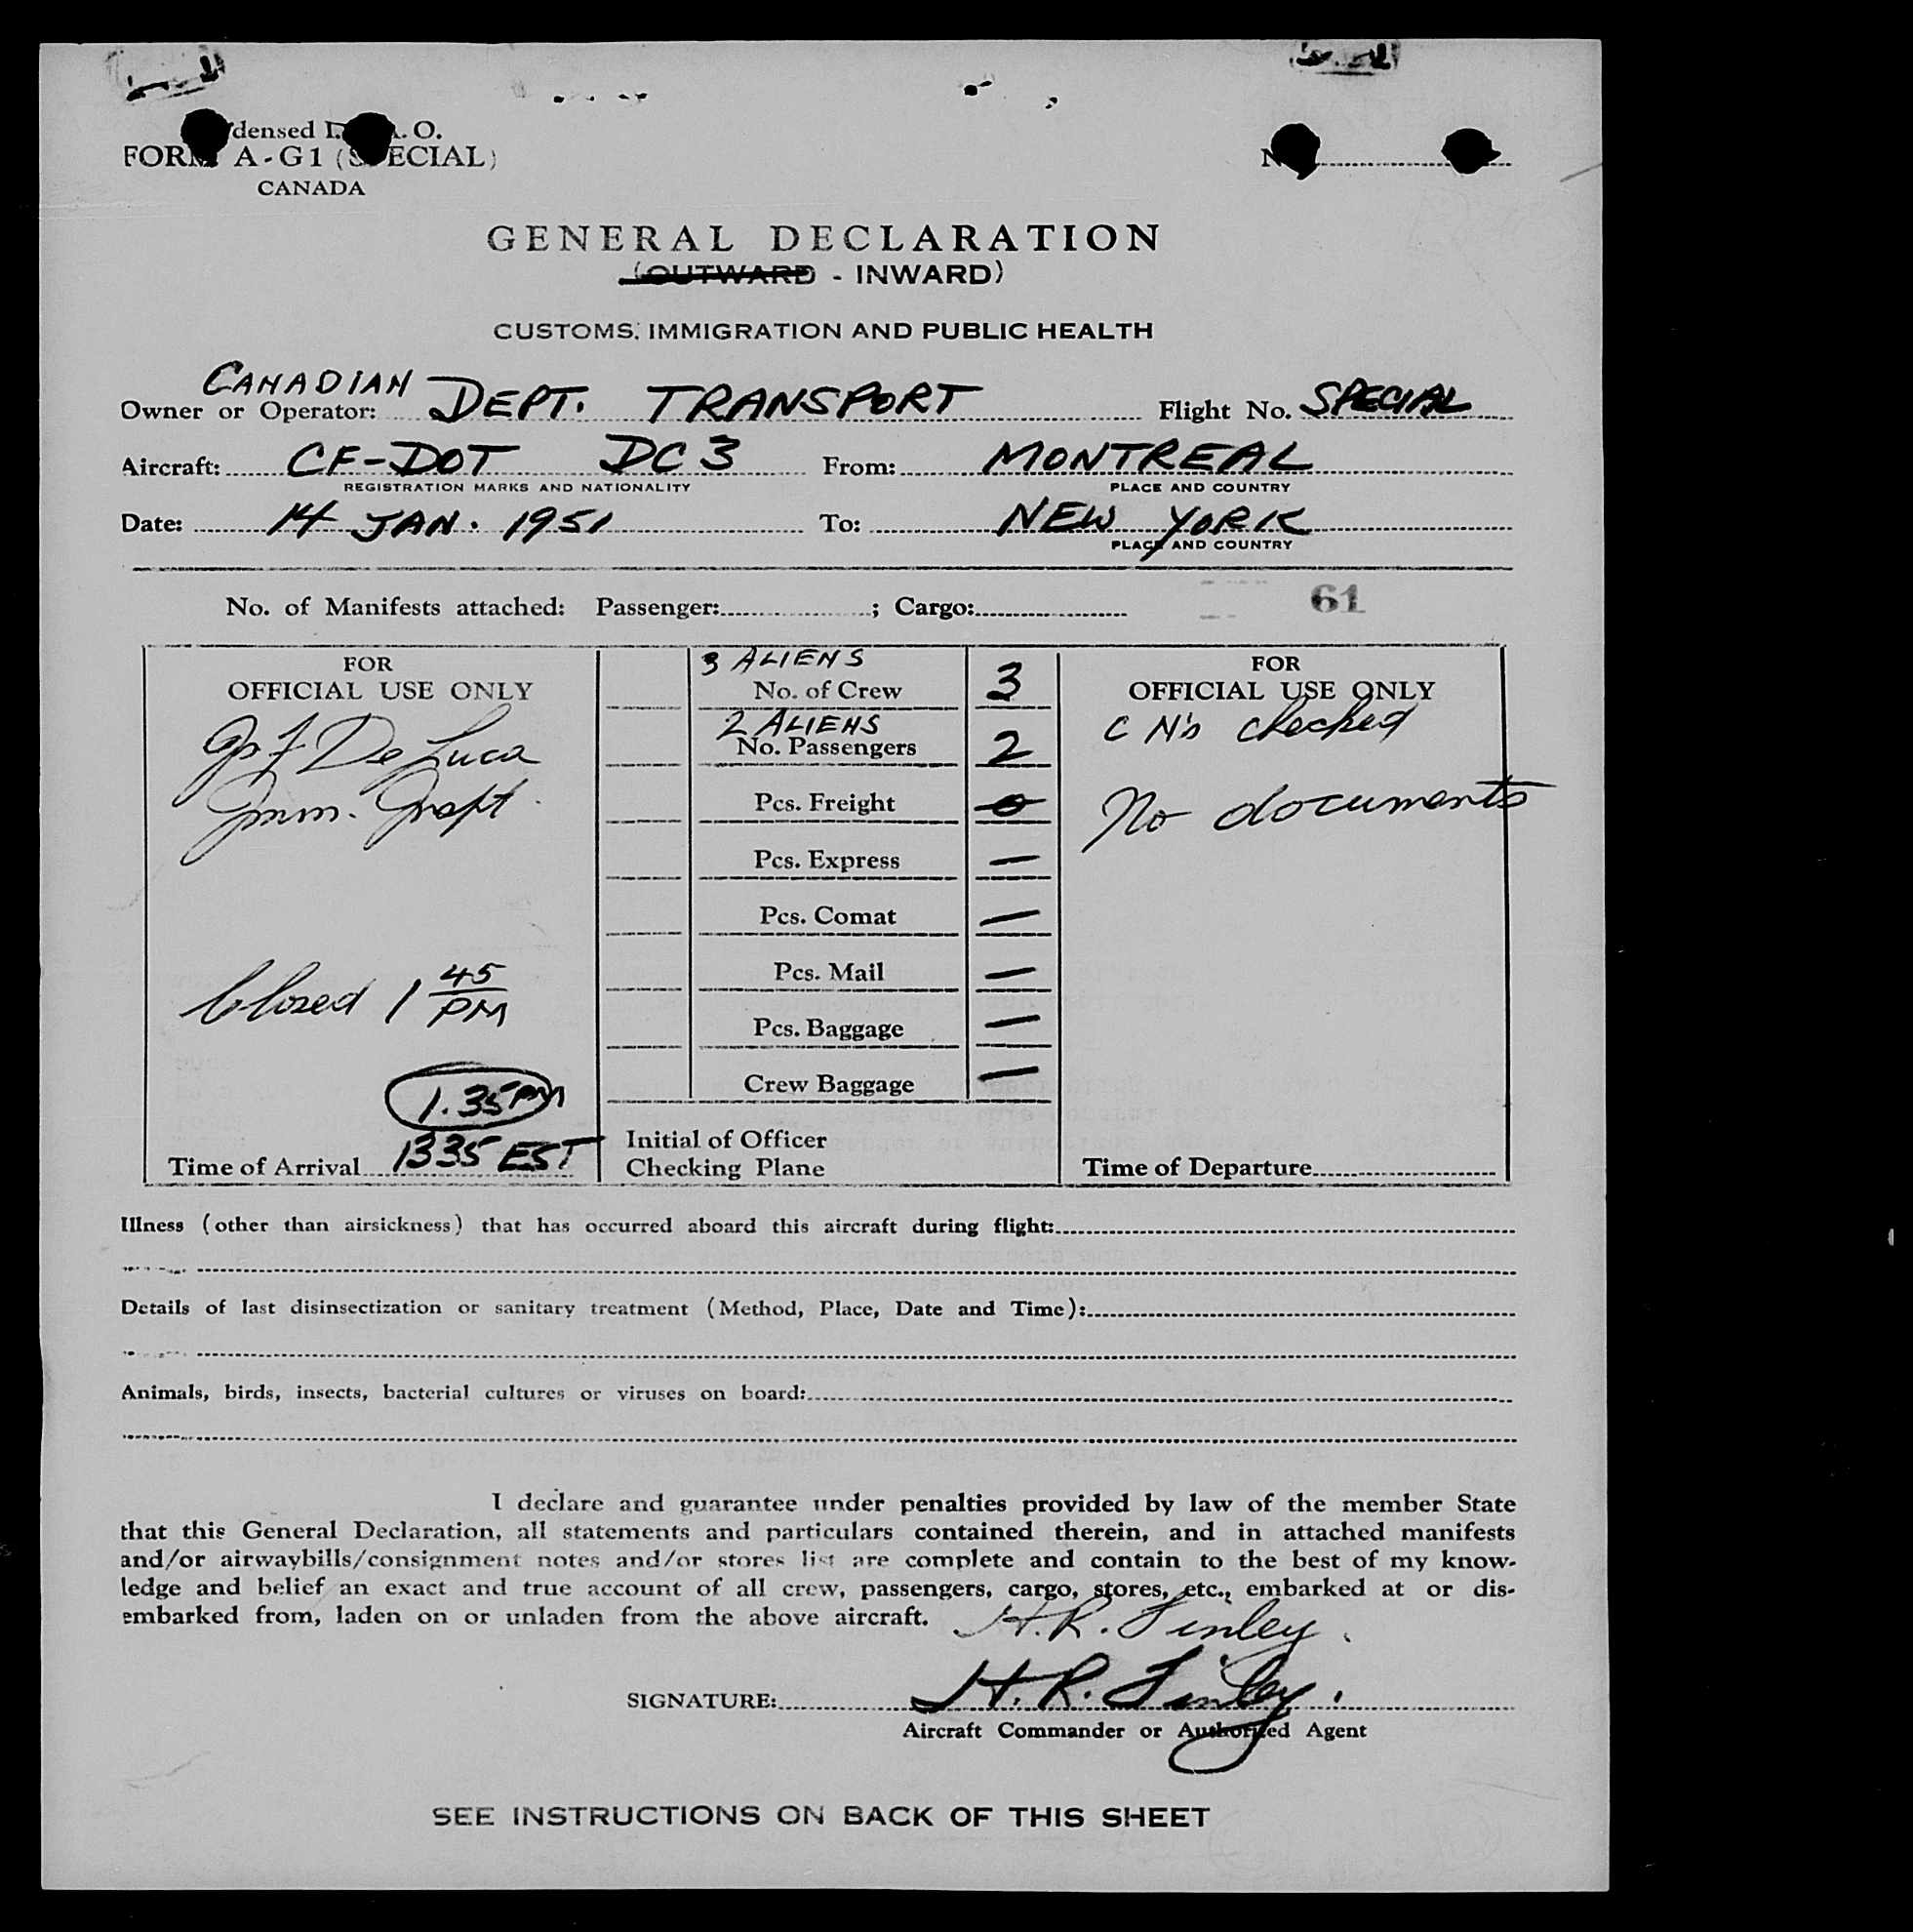 densed I. A. O.
FORM A-G1 (SPECIAL)
CANADA
GENERAL DECLARATION
(OUTWARD - INWARD)
CUSTOMS, IMMIGRATION AND PUBLIC HEALTH
CANADIAN
Owner or Operator: DEPT. TRANSPORT Flight No. SPECIAL
Aircraft: CF-DOT DC3 From: MONTREAL
REGISTRATION MARKS AND NATIONALITY PLACE AND COUNTRY
Date: 14 JAN. 1951 To: NEW YORK
PLACE AND COUNTRY
No. of Manifests attached: Passenger: ; Cargo: 61
FOR
OFFICIAL USE ONLY
De Luca
Imm. Inspt.
Closed 1 45 PM
1.35 PM
Time of Arrival 1335 EST
3 ALIENS
No. of Crew 3
2 ALIENS
No. Passengers 2
Pcs. Freight 0
Pcs. Express —
Pcs. Comat —
Pcs. Mail —
Pcs. Baggage —
Crew Baggage —
Initial of Officer
Checking Plane
FOR
OFFICIAL USE ONLY
C N's checked
No documents
Time of Departure
Illness (other than airsickness) that has occurred aboard this aircraft during flight:
Details of last disinsectization or sanitary treatment (Method, Place, Date and Time):
Animals, birds, insects, bacterial cultures or viruses on board:
I declare and guarantee under penalties provided by law of the member State
that this General Declaration, all statements and particulars contained therein, and in attached manifests
and/or airwaybills/consignment notes and/or stores list are complete and contain to the best of my know-
ledge and belief an exact and true account of all crew, passengers, cargo, stores, etc., embarked at or dis-
embarked from, laden on or unladen from the above aircraft.
H. R. Finley.
SIGNATURE: H. R. Finley.
Aircraft Commander or Authorized Agent
SEE INSTRUCTIONS ON BACK OF THIS SHEET